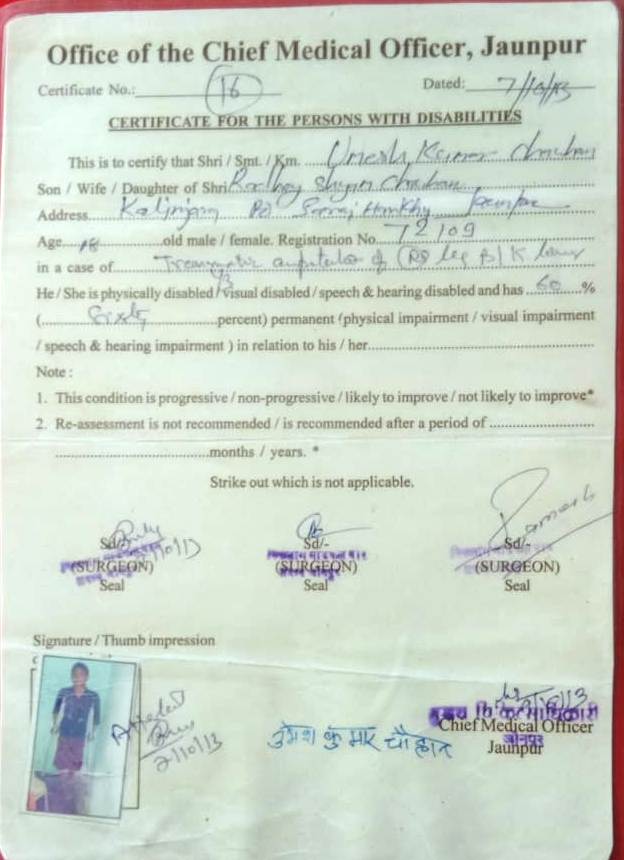 Office of the Chief Medical Officer, Jaunpur
Certificate No.: 16 Dated: 7/10/13
CERTIFICATE FOR THE PERSONS WITH DISABILITIES
This is to certify that Shri / Smt. / Km. Umesh Kumar Chauhan
Son / Wife / Daughter of Shri Radhey Shyam Chauhan
Address Jaunpur
Age 18 old male / female. Registration No. 72109
in a case of Treaumatic amputation of (Rt) leg B/K
He / She is physically disabled / visual disabled / speech & hearing disabled and has 60 %
(Sixty percent) permanent (physical impairment / visual impairment
/ speech & hearing impairment ) in relation to his / her
Note :
1. This condition is progressive / non-progressive / likely to improve / not likely to improve*
2. Re-assessment is not recommended / is recommended after a period of
months / years. *
Strike out which is not applicable.
Sd/- Sd/- Sd/-
(SURGEON) (SURGEON) (SURGEON)
Seal Seal Seal
Signature / Thumb impression
Attested
उमेश कुमार चौहान
मुख्य चिकित्साधिकारी
Chief Medical Officer
जौनपुर
Jaunpur